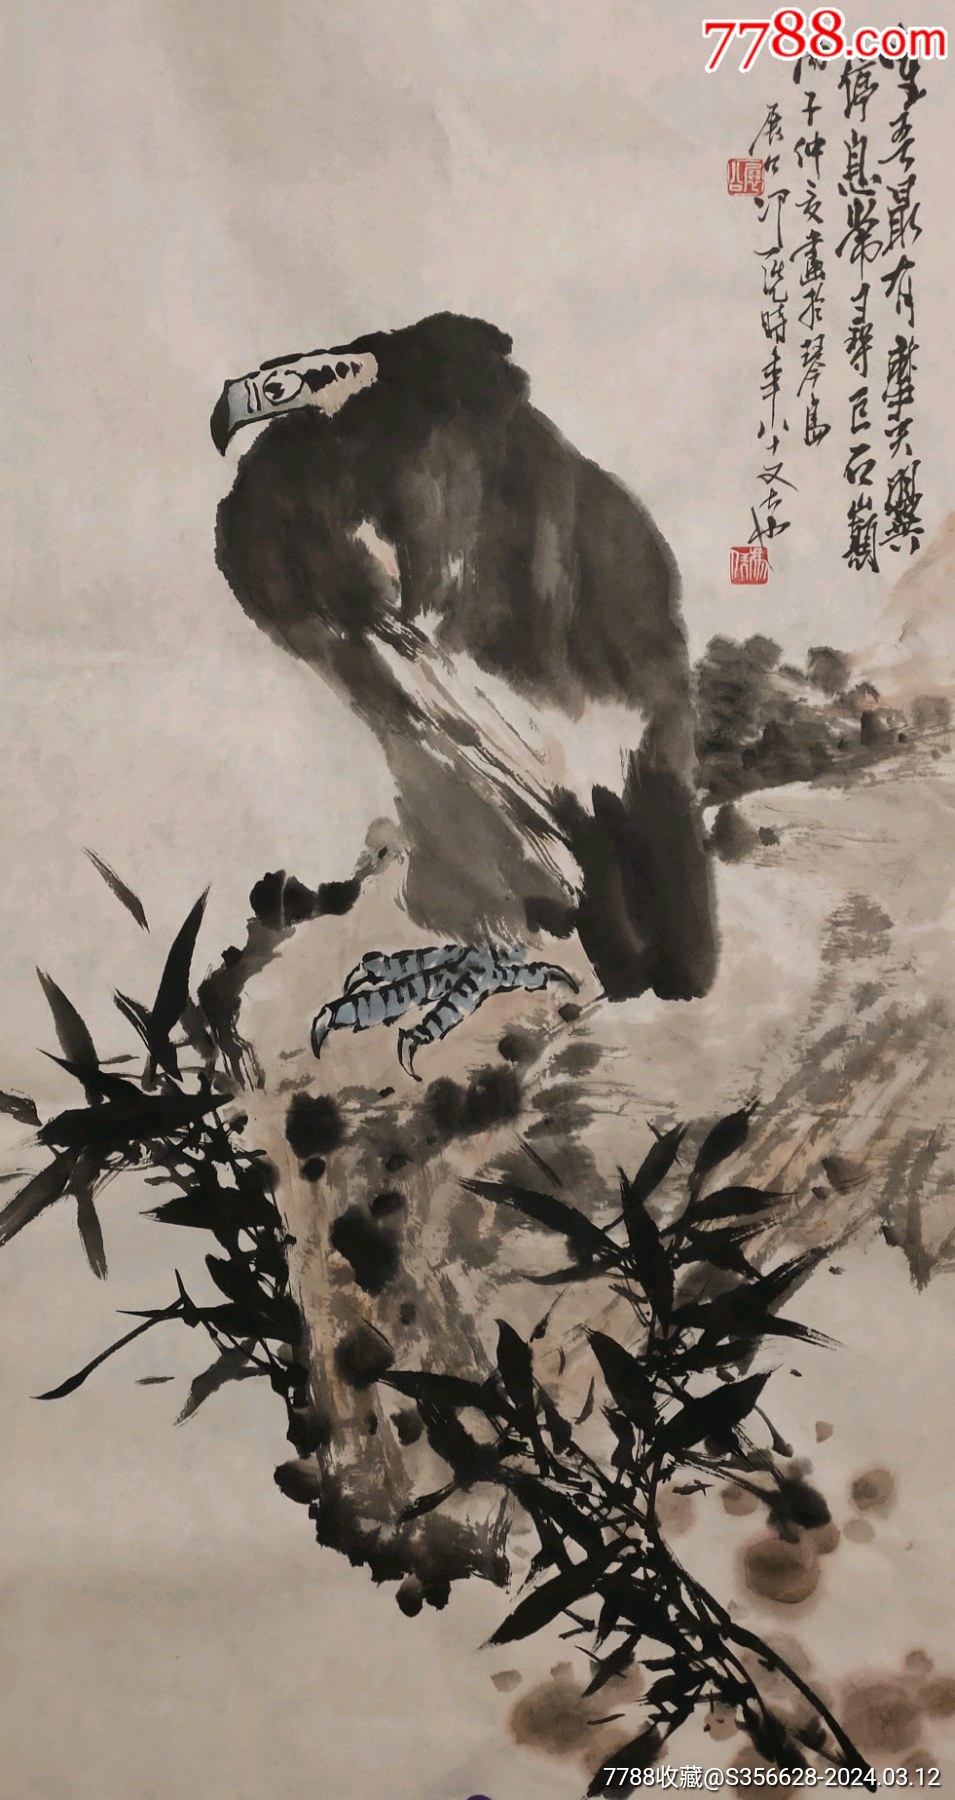 7788.com
唯吾最有摩天翼
停息常尋巨石巔
丙子仲夏畫於琴島
展公 時年八十又
7788收藏@S356628-2024.03.12